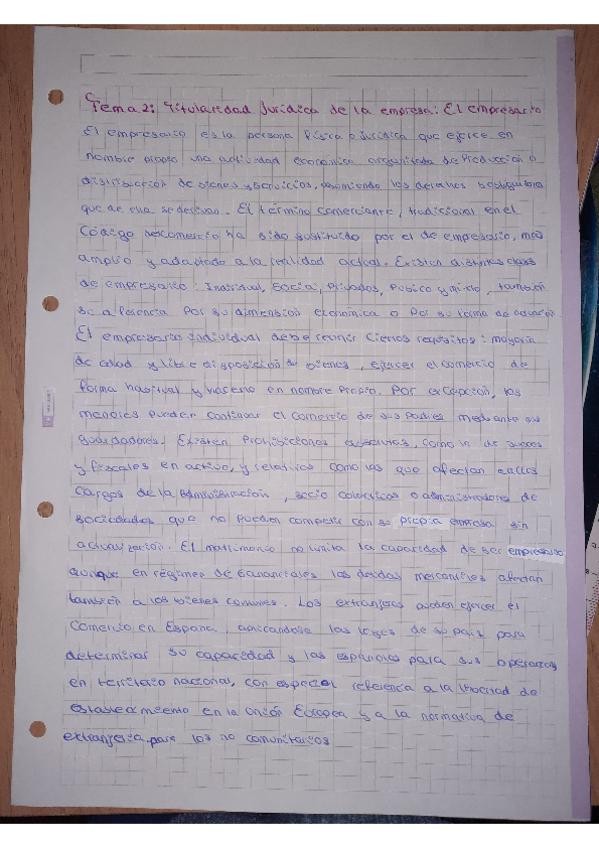 Tema 2: Titularidad Jurídica de la empresa: El empresario
El empresario es la persona física o jurídica que ejerce en
nombre propio una actividad económica organizada de Producción o
distribución de bienes y servicios, asumiendo los derechos y obligaciones
que de ella se derivan. El término comerciante, tradicional en el
Código de comercio ha sido sustituido por el de empresario, más
amplio y adaptado a la realidad actual. Existen distintas clases
de empresario: Individual, Social, Privados, Público y mixto, también
se diferencia por su dimensión económica o por su forma de
El empresario individual debe reunir ciertos requisitos: mayoría
de edad y libre disposición de bienes, ejercer el comercio de
forma habitual y hacerlo en nombre Propio. Por excepción, los
menores pueden continuar el comercio de sus Padres mediante sus
guardadores. Existen Prohibiciones absolutas, como la de jueces
y fiscales en activo, y relativas como las que afectan
cargos de la administración, socio colectivos o administradores de
sociedades que no pueden competir con su propia empresa sin
El matrimonio no limita la capacidad de ser empresario
aunque en régimen de Gananciales las deudas mercantiles afectan
también a los bienes comunes. Los extranjeros pueden ejercer el
Comercio en España, aplicandose las leyes de su país para
determinar su capacidad y las españolas para sus operaciones
en territorio nacional, con especial referencia a la libertad de
establecimiento en la Unión Europea y a la normativa de
extranjería para los no comunitarios